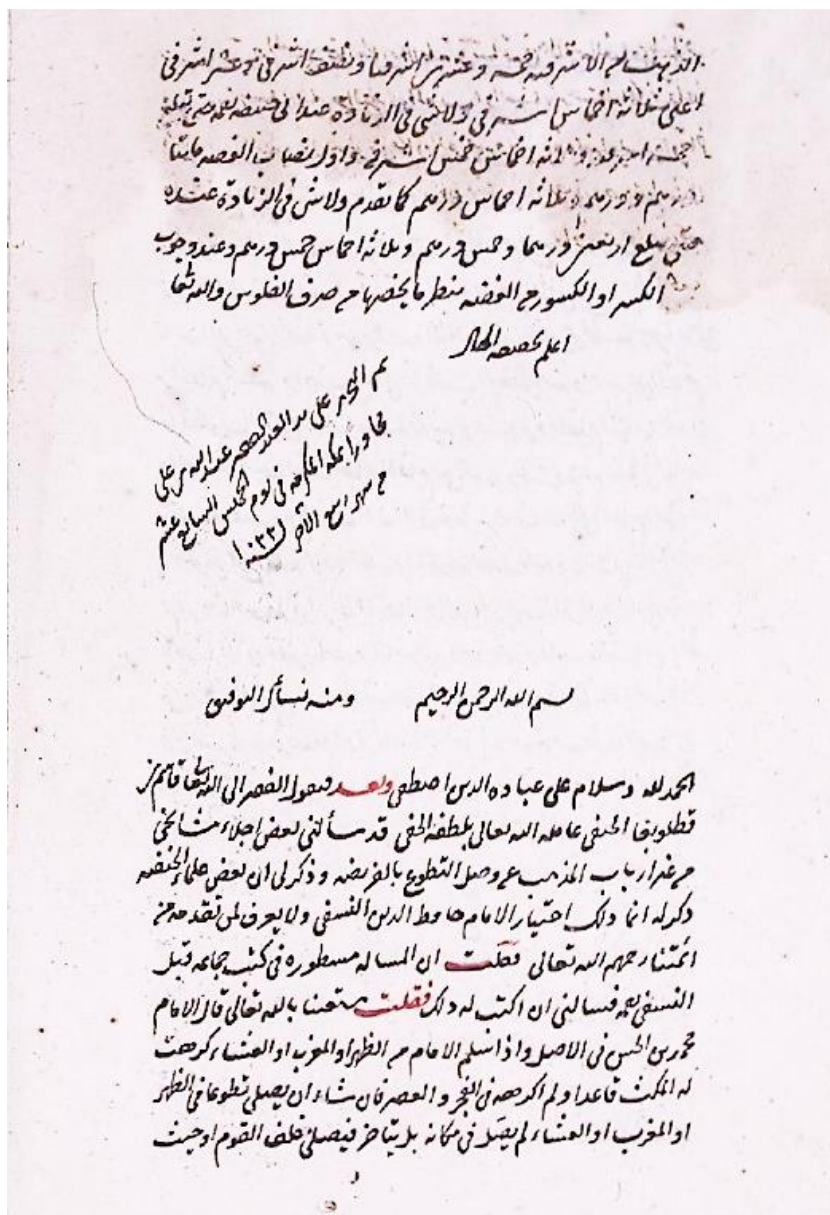 الذهب من الاشرفيه خمسه وعشرين اشرفيا ونصف اشرفي وعشر اشرفي
اعلى ثلاثه اخماس اشرفي ولا شى فى الزياده عند ابى حنيفه رحمه حتى تبلغ
خمسه اشرفيه وثلاثه اخماس خمس اشرفي واول نصاب الفضه مايتا
درهم ودرهم وثلاثه اخماس درهم كما تقدم ولا شى فى الزيادة عنده
حتى تبلغ اربعين درهما وخمس درهم وثلاثه اخماس خمس درهم وعند وجوب
الكسر او الكسور من الفضه ينظر ما يخصها من صرف الفلوس والله تعا
اعلم بحقيقه الحال
تم التحرير على يد العبد الفقير عبد الله بن على
مجاورا بمكه المكرمه فى يوم الخميس السابع عشر
من شهر ربيع الاخر سنه
بسم الله الرحمن الرحيم ومنه نسأل التوفيق
الحمد لله وسلام على عباده الذين اصطفى وبعد فيقول الفقير الى الله تعا قاسم بن
قطلوبغا الحنفى عامله الله تعالى بلطفه الخفى قد سألنى بعض اجلاء مشائخى
من غير ارباب المذهب عن وصل التطوع بالفريضه وذكر لى ان بعض علماء الحنفيه
ذكر له انما ذلك اختيار الامام حافظ الدين النسفى ولا يعرف لمن تقدمه من
ائمتنا رحمهم الله تعالى فقلت ان المساله مسطوره فى كتب جماعه قبل
النسفى رحمه فسالنى ان اكتب له ذلك فقلت مستعينا بالله تعالى قال الامام
محمد بن الحسن فى الاصل واذا سلم الامام من الظهر او المغرب او العشاء كرهت
له المكث قاعدا ولم اكرهه فى الفجر والعصر فان شاء ان يصلى تطوعا فى الظهر
او المغرب او العشاء لم يصل فى مكانه بل يتاخر فيصلى خلف القوم او حيث